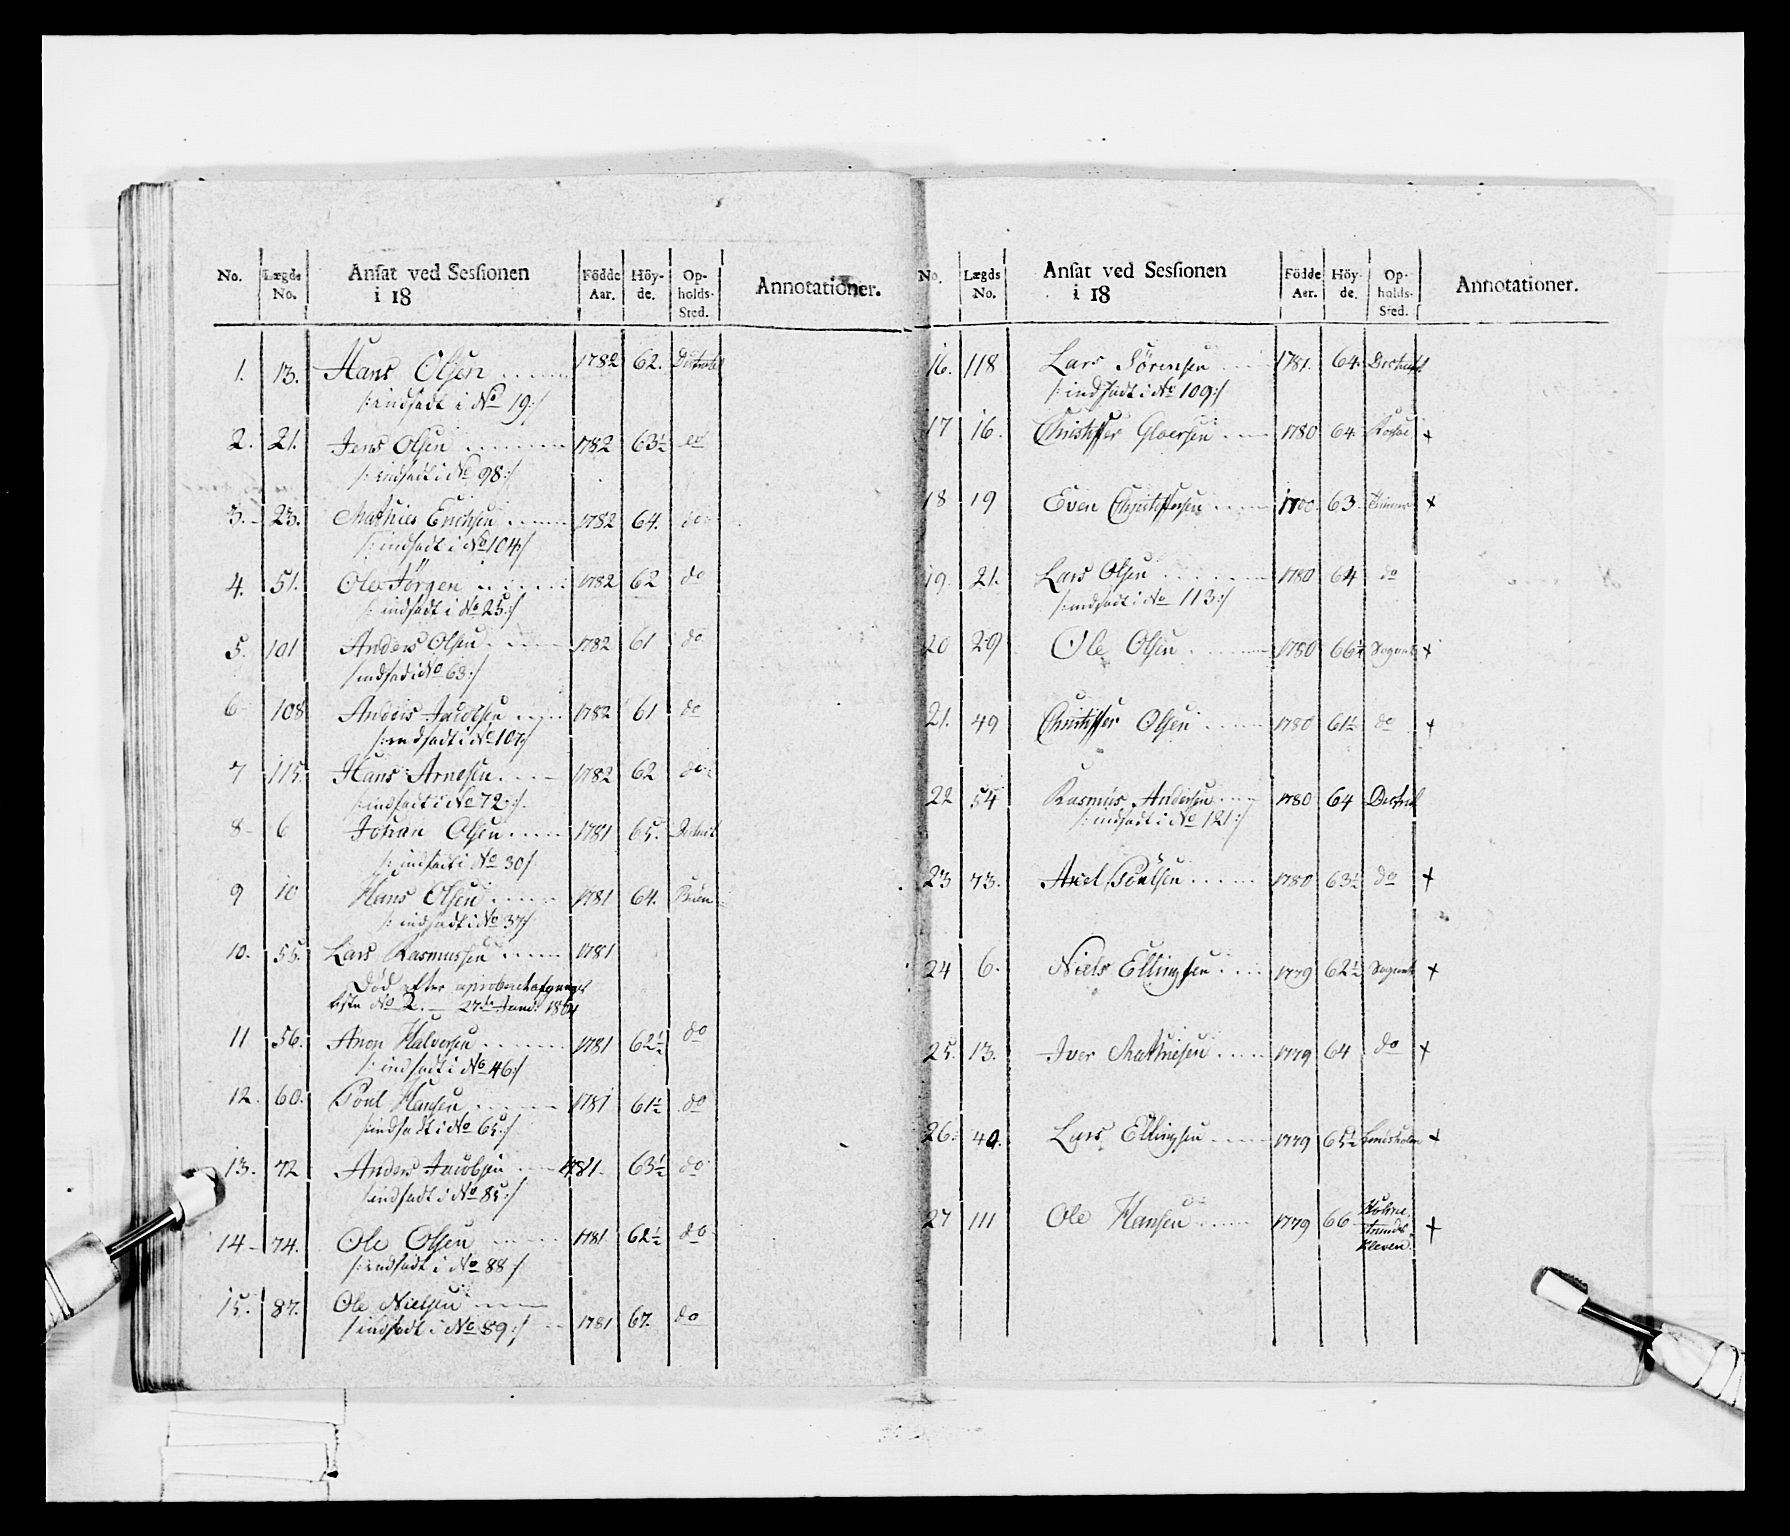 No. Lægds No. Ansat ved Sessionen i 18 Födde Aar. Höy- de. Op- holds- Sted. Annotationer.
1. 13. Hans Olsen 1782 62. District
/: indsadt i No 19 :/
2. 21. Jens Olsen 1782 63½ do
/: indsadt i No 98 :/
3. 23. Mathies Erichsen 1782 64. do
/: indsadt i No 104 :/
4. 51. Ole Jörgen 1782 62 do
/: indsadt i No 25 :/
5. 101 Anders Olsen 1782 61 do
/: indsad i No 63 :/
6 108 Anders Jacobsen 1782 61 do
/: indsadt i No 107 :/
7 115 Hans Arnesen 1782 62 do
/: indsadt i No 72 :/
8 6 Johan Olsen 1781 65. District
/: indsadt i No 30 :/
9 10 Hans Olsen 1781 64.
/: indsadt i No 37 :/
10. 55. Lars Rasmussen 1781
Död efter
No 2. 27de Janr: 1804
11 56. Anon Halvorsen 1781 62½ do
/: indsadt i No 46 :/
12. 60. Poul Hansen 1781 61½ do
/: indsadt i No 65 :/
13. 72 Anders Jacobsen 1781 63½ do
/: indsadt i No 85 :/
14 74. Ole Olsen 1781 62½ do
/: indsadt i No 88 :/
15. 87. Ole Nielsen
/: indsadt i No 89 :/ 1781 67. do
No. Lægds No. Ansat ved Sessionen i 18 Födde Aar. Höy- de. Op- holds- Sted. Annotationer.
16. 118 Lars Sörensen 1781. 64. District
/: indsadt i No 109 :/
17 16. Christoffer Gloersen 1780 64 +
18 19 Even Christoffersen 63. +
19. 21. Lars Olsen 1780 64 do
/: indsadt i No 113 :/
20 29 Ole Olsen 1780 Sognet +
21. 49 Christoffer Olsen 1780 61½ do +
22 54 Rasmus Andersen 1780 64 District
/: indsadt i No 121 :/
23 73. Axel Poulsen 1780 63½ do +
24 6. Niels Ellingsen 1779 62½ Sognet +
25. 13. Iver Mathiesen 1779 64 do +
26. 40. Lars Ellingsen 1779 65½ +
27 111 Ole Hansen 1779 66 +
Kleven.